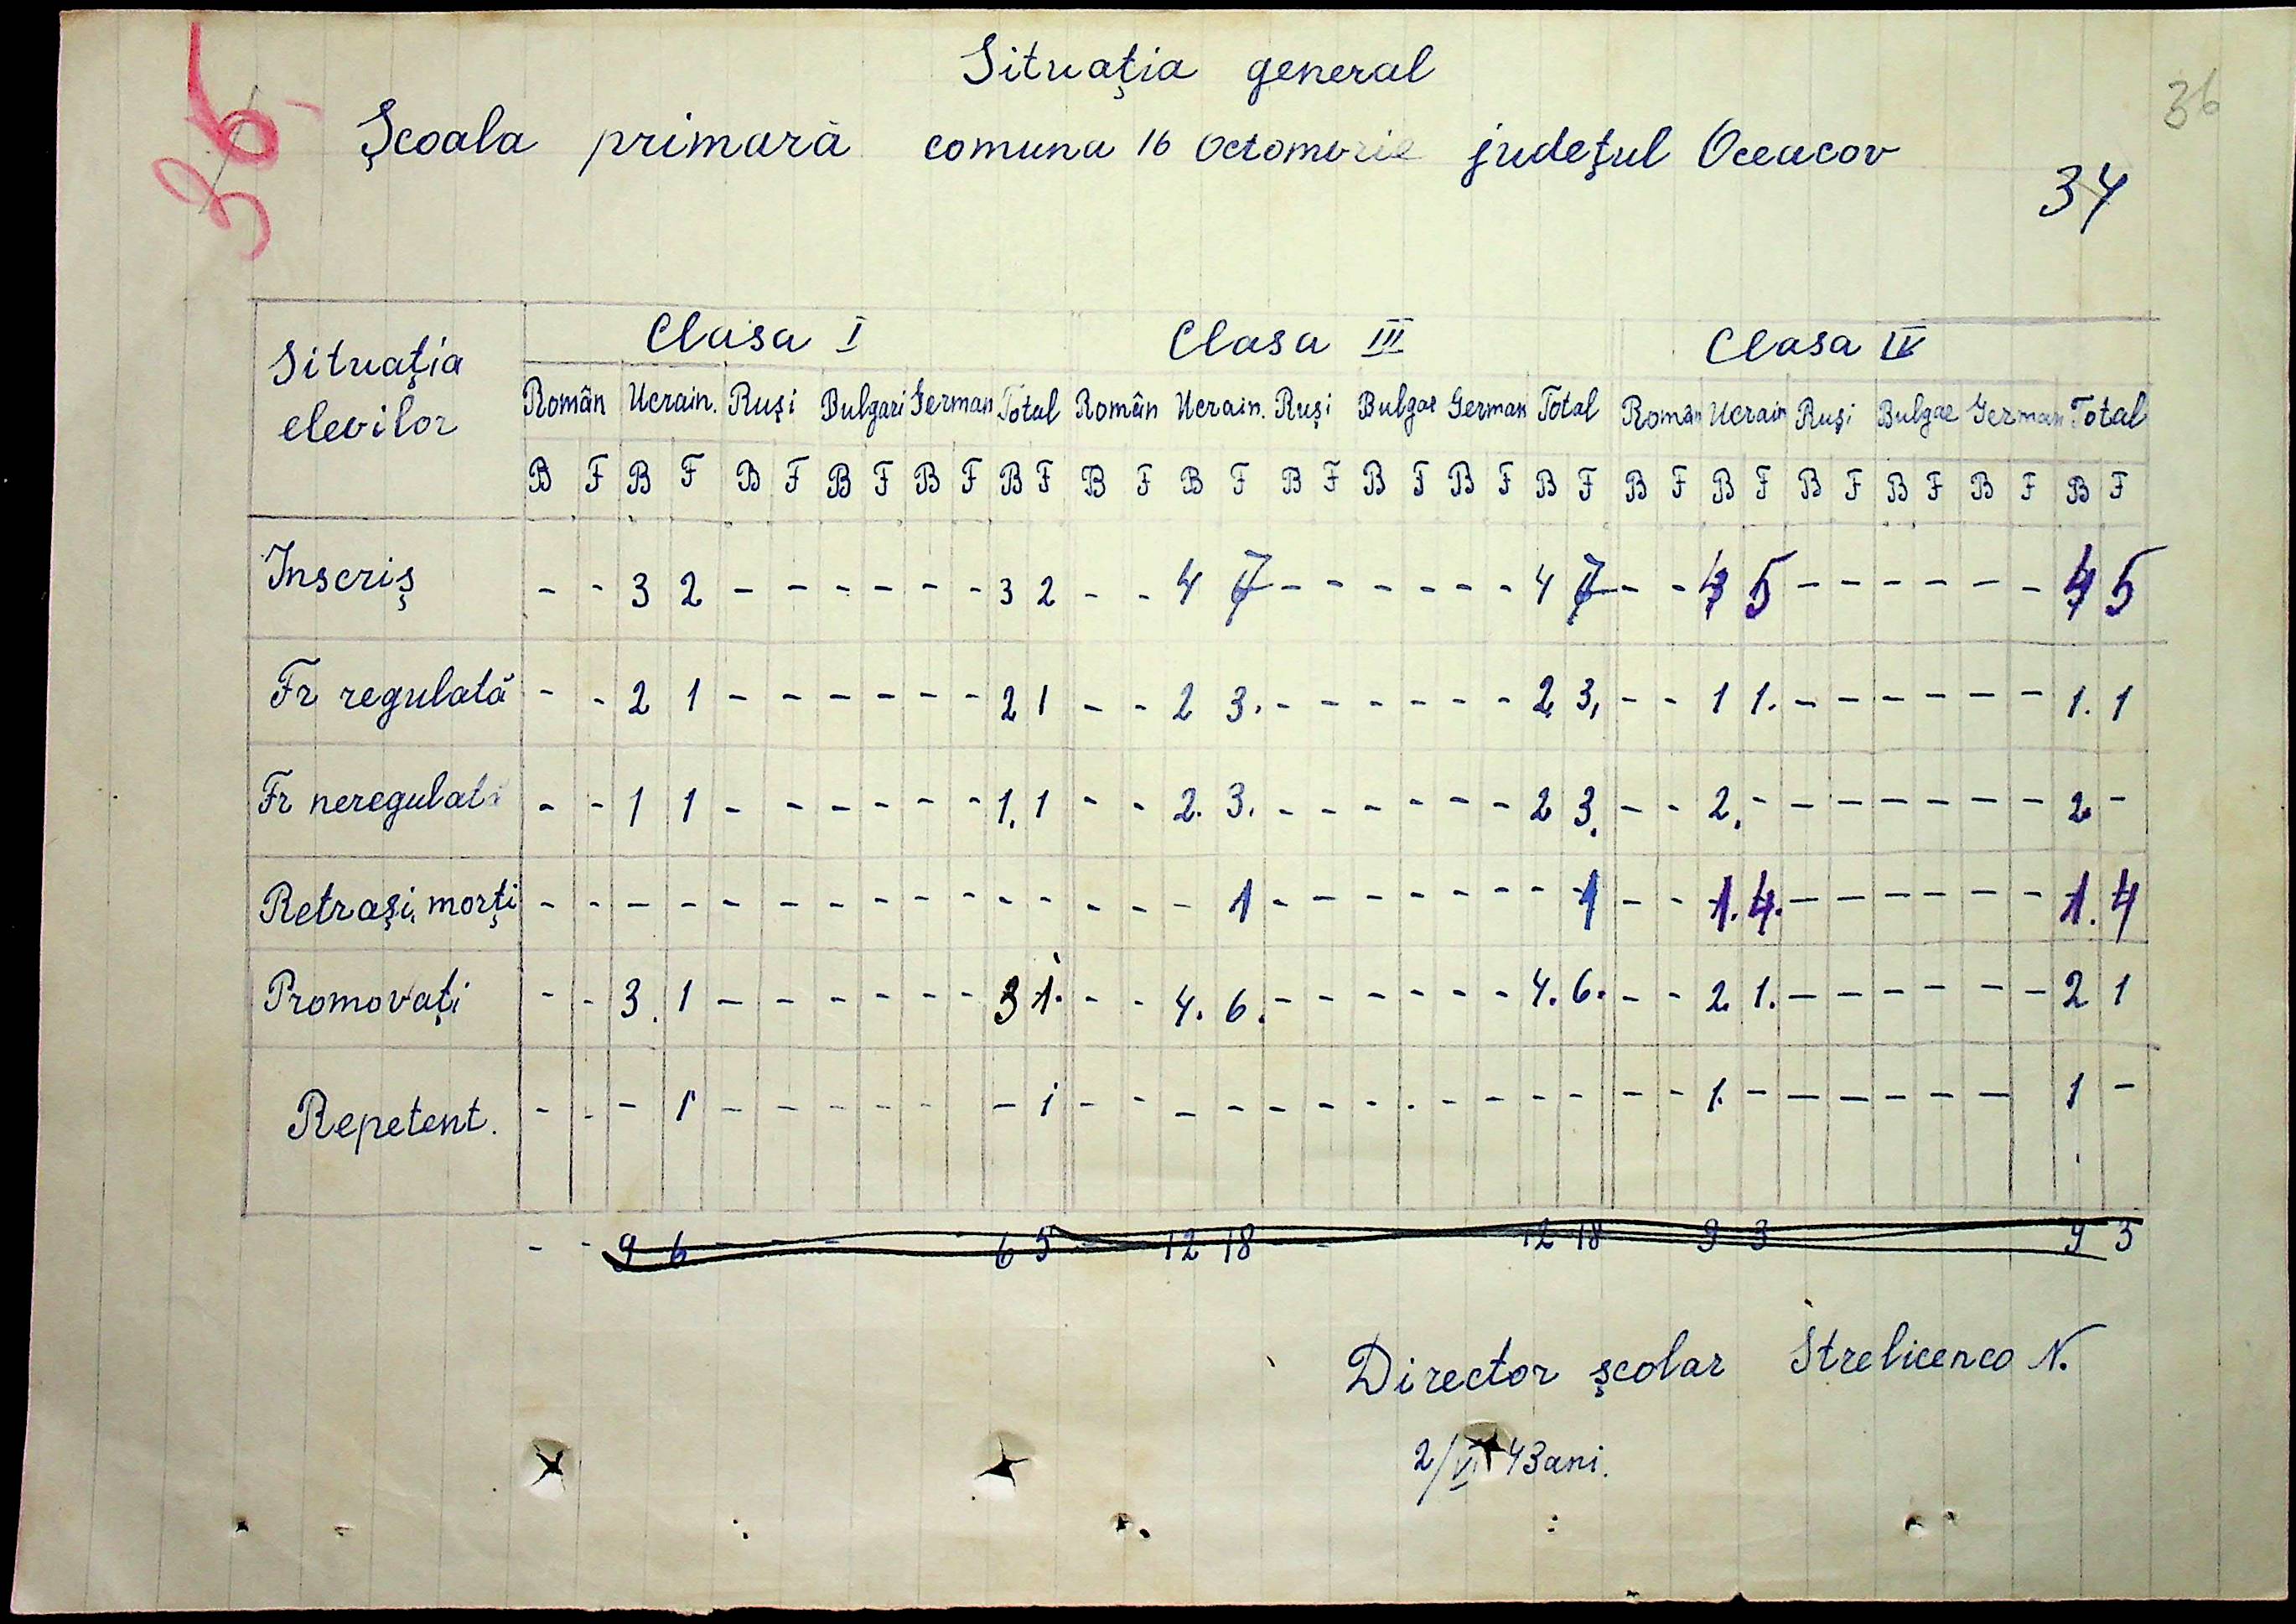 36.
Situaţia general
36
Şcoala primară comuna 16 Octombrie judeţul Oceacov
34
Situaţia elevilor Clasa I Clasa III Clasa IV
Român Ucrain. Ruşi Bulgari German Total Român Ucrain. Ruşi Bulgar German Total Român Ucrain Ruşi Bulgar German Total
B F B F B F B F B F B F B F B F B F B F B F B F B F B F B F B F B F B F
Inscriş - - 3 2 - - - - - - 3 2 - - 4 7 - - - - - - 4 7 - - 4 5 - - - - - - 4 5
Fr regulată - - 2 1 - - - - - - 2 1 - - 2 3. - - - - - - 2 3, - - 1 1. - - - - - - 1. 1
Fr neregulată - - 1 1 - - - - - - 1. 1 - - 2. 3. - - - - - - 2 3. - - 2. - - - - - - - 2 -
Retraşi, morţi - - - - - - - - - - - - - - - 1 - - - - - - - 1 - - 1. 4. - - - - - - 1. 4
Promovaţi - - 3. 1 - - - - - - 3 1. - - 4. 6. - - - - - - 4. 6. - - 2 1. - - - - - - 2 1
Repetent. - - - 1 - - - - - - 1 - - - - - - - - - - - - - - 1. - - - - - - - 1 -
- - 9 6 - - - 6 5 12 18 12 18 9 3 9 3
Director şcolar Strelicenco N.
2/VI 43 ani.